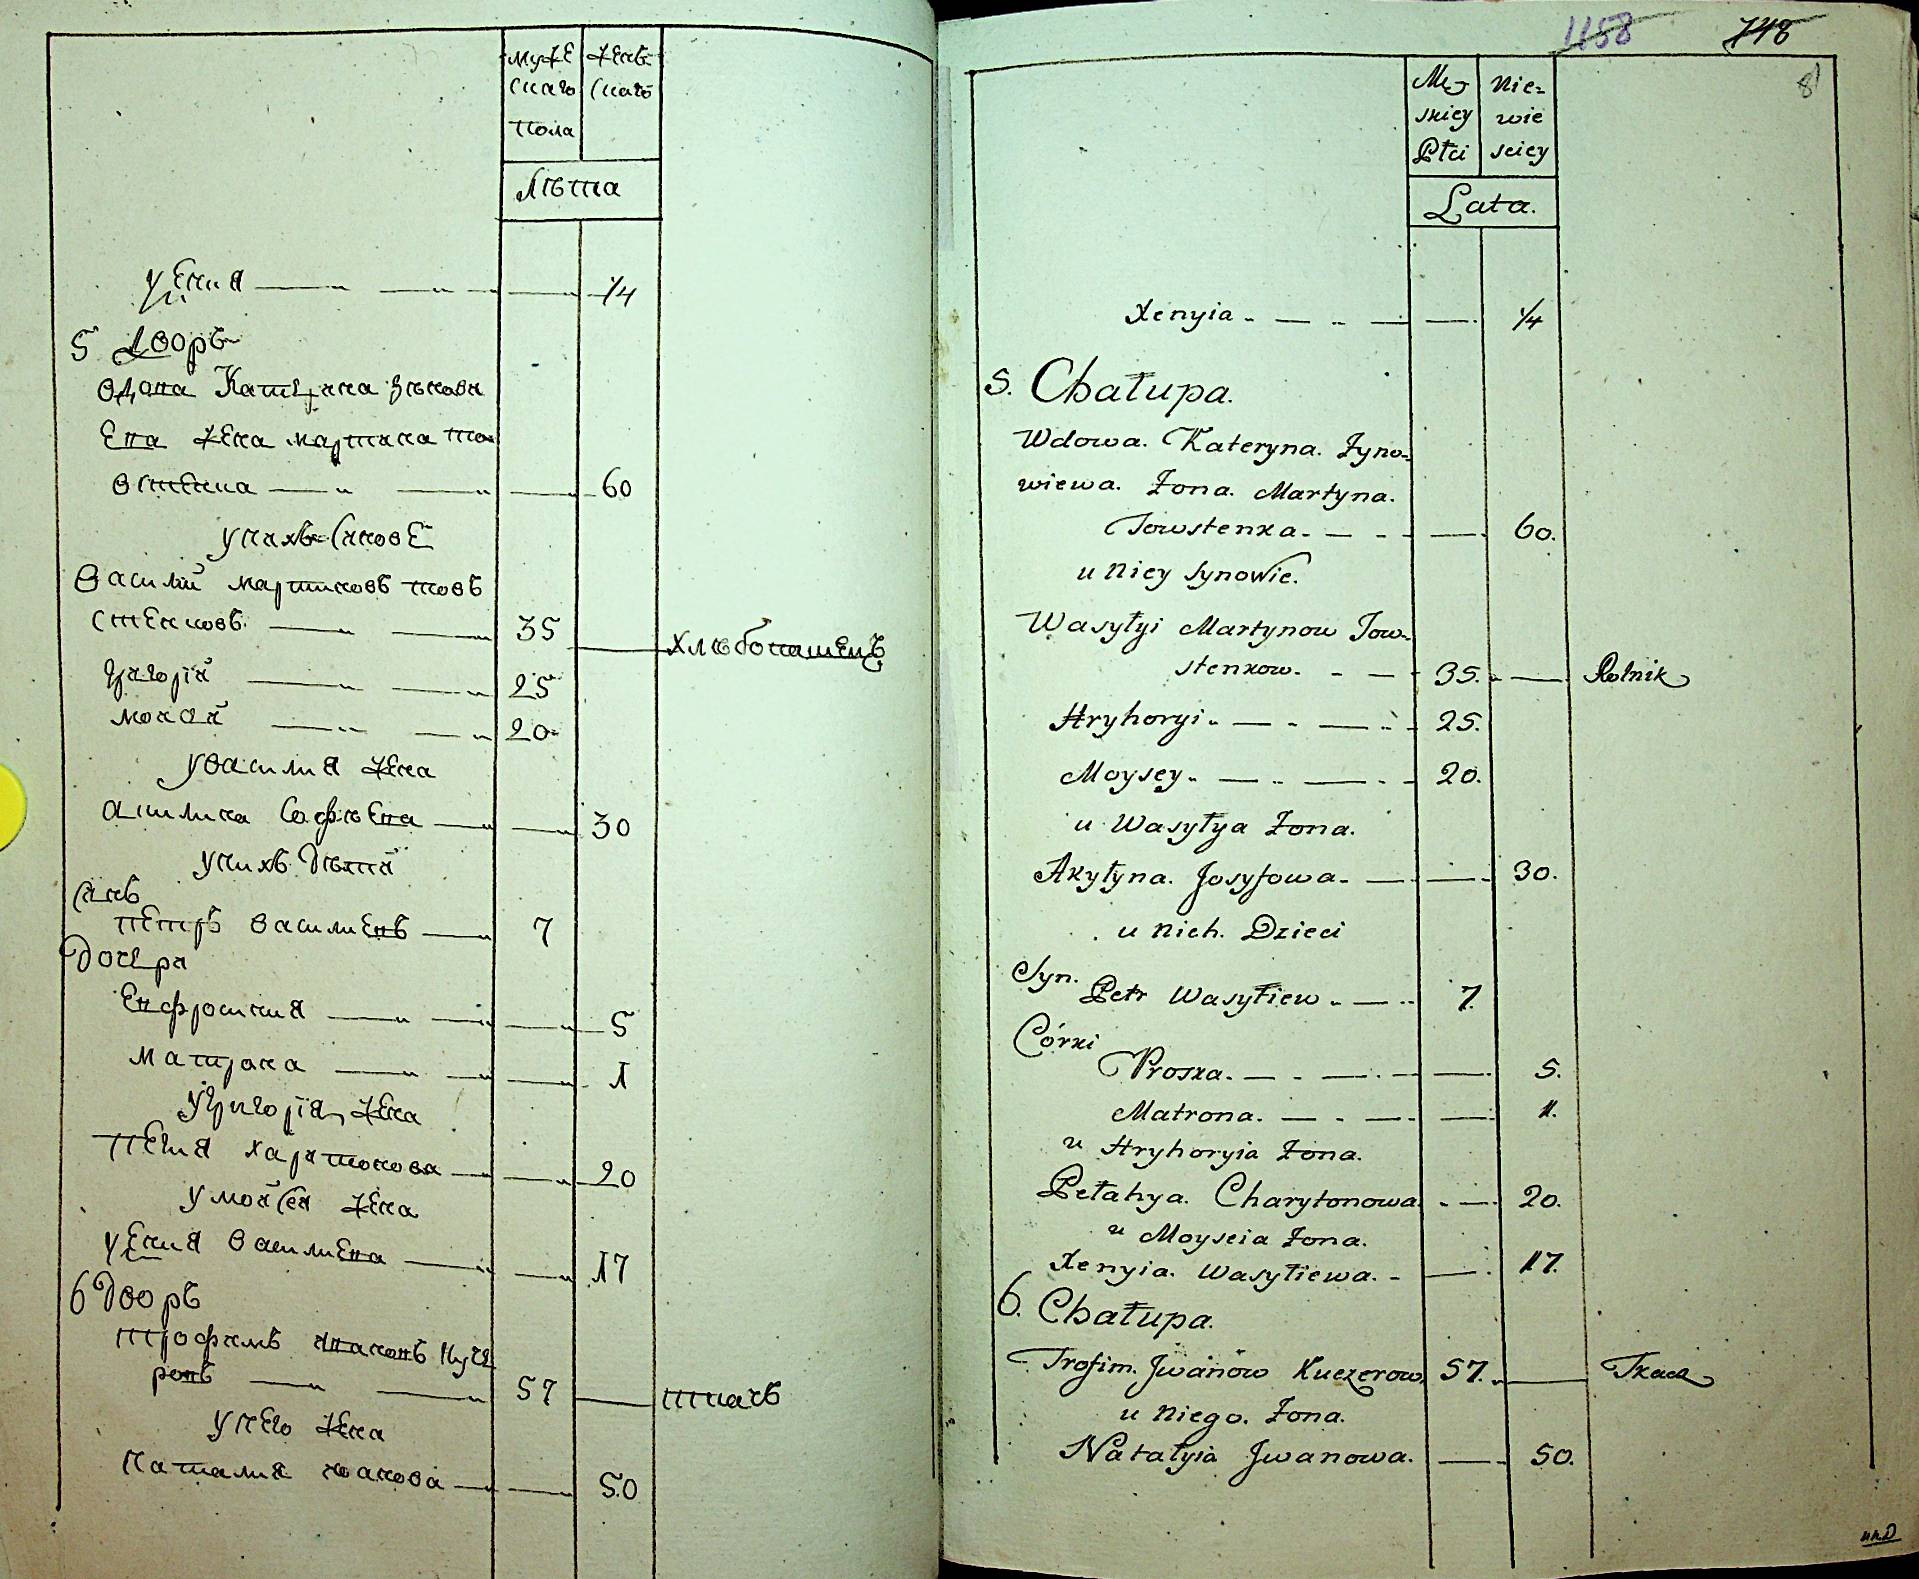 Муже
скаго
пола
женъ-
скаго
Лѣта
Уксения 1/4
5 Дворъ
Вдова Катерина Зѣновѣ
ева жена мартина то
встенка 60
у нихъ Синове
Василий мартиновъ товъ
стенковъ 35 хлѣбопашецъ
Григорій 25
моисей 20
У василия жена
акилина Іосифлева 30
у нихъ дѣти
Синъ
петръ василиевъ 7
дочери
Евфросиния 5
матрона 1
У григорія жена
пелагия харитонова 20
У мойсея жена
уксения василиева 17
6 дворъ
трофимъ ивановъ куче
ровъ 57 ткачъ
у него жена
наталия иванова 50
1158 748
8
Mę-
skiey
Płci
Nie-
wie
sciey
Lata.
Xenyia 1/4
5. Chałupa.
Wdowa. Kateryna. Zyno-
wiewa. Żona. Martyna.
Towstenka. 60.
u Niey Synowie.
Wasyłyi Martynow Tow-
stenkow. 35. Rolnik
Hryhoryi 25.
Moysey 20.
u Wasyłya Żona.
Akyłyna. Josyfowa. 30.
u Nich. Dzieci
Syn.
Petr Wasyłiew 7.
Córki
Proska. 5.
Matrona. 1.
u Hryhoryia Żona.
Pełahya. Charytonowa. 20.
u Moyseia Żona.
Xenyia. Wasyłiewa. 17.
6. Chałupa.
Trofim. Jwanow Kuczerow, 57. Tkacz
u Niego. Żona.
Natałyia Jwanowa. 50.